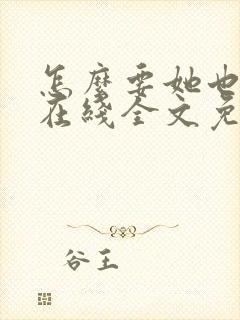 怎麽要她也
在线全文免
谷王